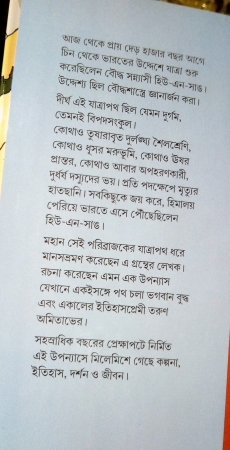 আজ থেকে প্রায় দেড় হাজার বছর আগে
চিন থেকে ভারতের উদ্দেশে যাত্রা শুরু
করেছিলেন বৌদ্ধ সন্ন্যাসী হিউ-এন-সাঙ।
উদ্দেশ্য ছিল বৌদ্ধশাস্ত্রে জ্ঞানার্জন করা।
দীর্ঘ এই যাত্রাপথ ছিল যেমন দুর্গম,
তেমনই বিপদসংকুল।
কোথাও তুষারাবৃত দুর্লঙ্ঘ্য শৈলশ্রেণি,
কোথাও ধূসর মরুভূমি, কোথাও ঊষর
প্রান্তর, কোথাও আবার অপহরণকারী,
দুর্ধর্ষ দস্যুদের ভয়। প্রতি পদক্ষেপে মৃত্যুর
হাতছানি। সবকিছুকে জয় করে, হিমালয়
পেরিয়ে ভারতে এসে পৌঁছেছিলেন
হিউ-এন-সাঙ।
মহান সেই পরিব্রাজকের যাত্রাপথ ধরে
মানসভ্রমণ করেছেন এ গ্রন্থের লেখক।
রচনা করেছেন এমন এক উপন্যাস
যেখানে একইসঙ্গে পথ চলা ভগবান বুদ্ধ
এবং একালের ইতিহাসপ্রেমী তরুণ
অমিতাভের।
সহস্রাধিক বছরের প্রেক্ষাপটে নির্মিত
এই উপন্যাসে মিলেমিশে গেছে কল্পনা,
ইতিহাস, দর্শন ও জীবন।